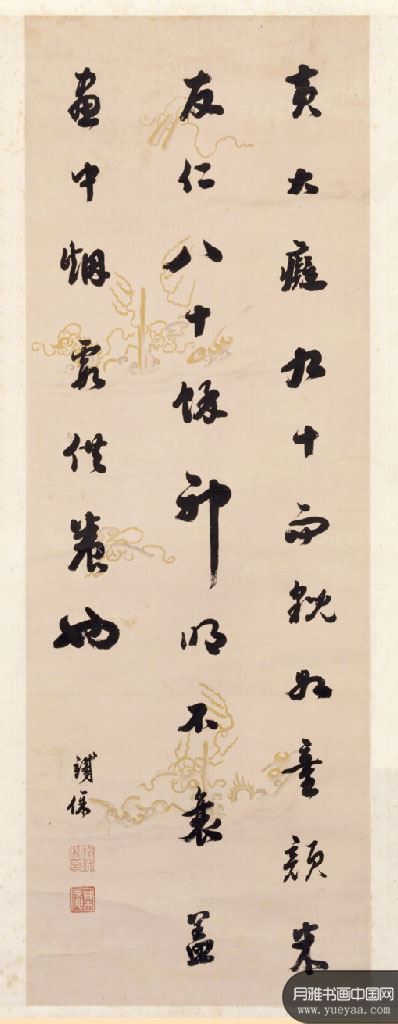 黄大癡九十而貌如童顔米
友仁八十餘神明不衰蓋
畫中烟雲供養也
鐵保
月雅书画中国网
www.yueyaa.com